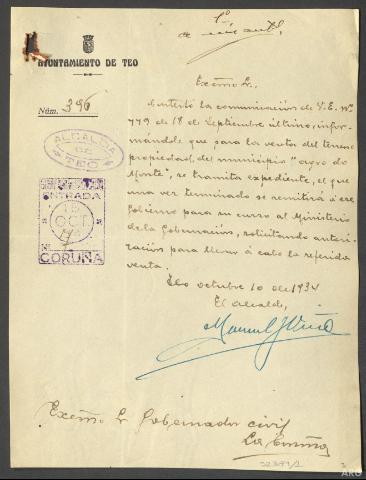 AYUNTAMIENTO DE TEO
Núm. 396
ALCALDIA
DE
TEO
ENTRADA
OCT
CORUÑA
Excmo Sr.
Contesto la comunicación de V.E. Nº
779 de 18 de Septiembre último, infor-
mándole que para la venta del terreno
propiedad del municipio "agro do
Monte", se tramita expediente, el que
una vez terminado se remitirá á ese
Gobierno para su curso al Ministerio
de la Gobernación, solicitando autori-
zación para llevar á cabo la referida
venta.
Teo octubre 10 de 1934
El Alcalde,
Manuel
Excmo Sr Gobernador civil
La Coruña
ARG